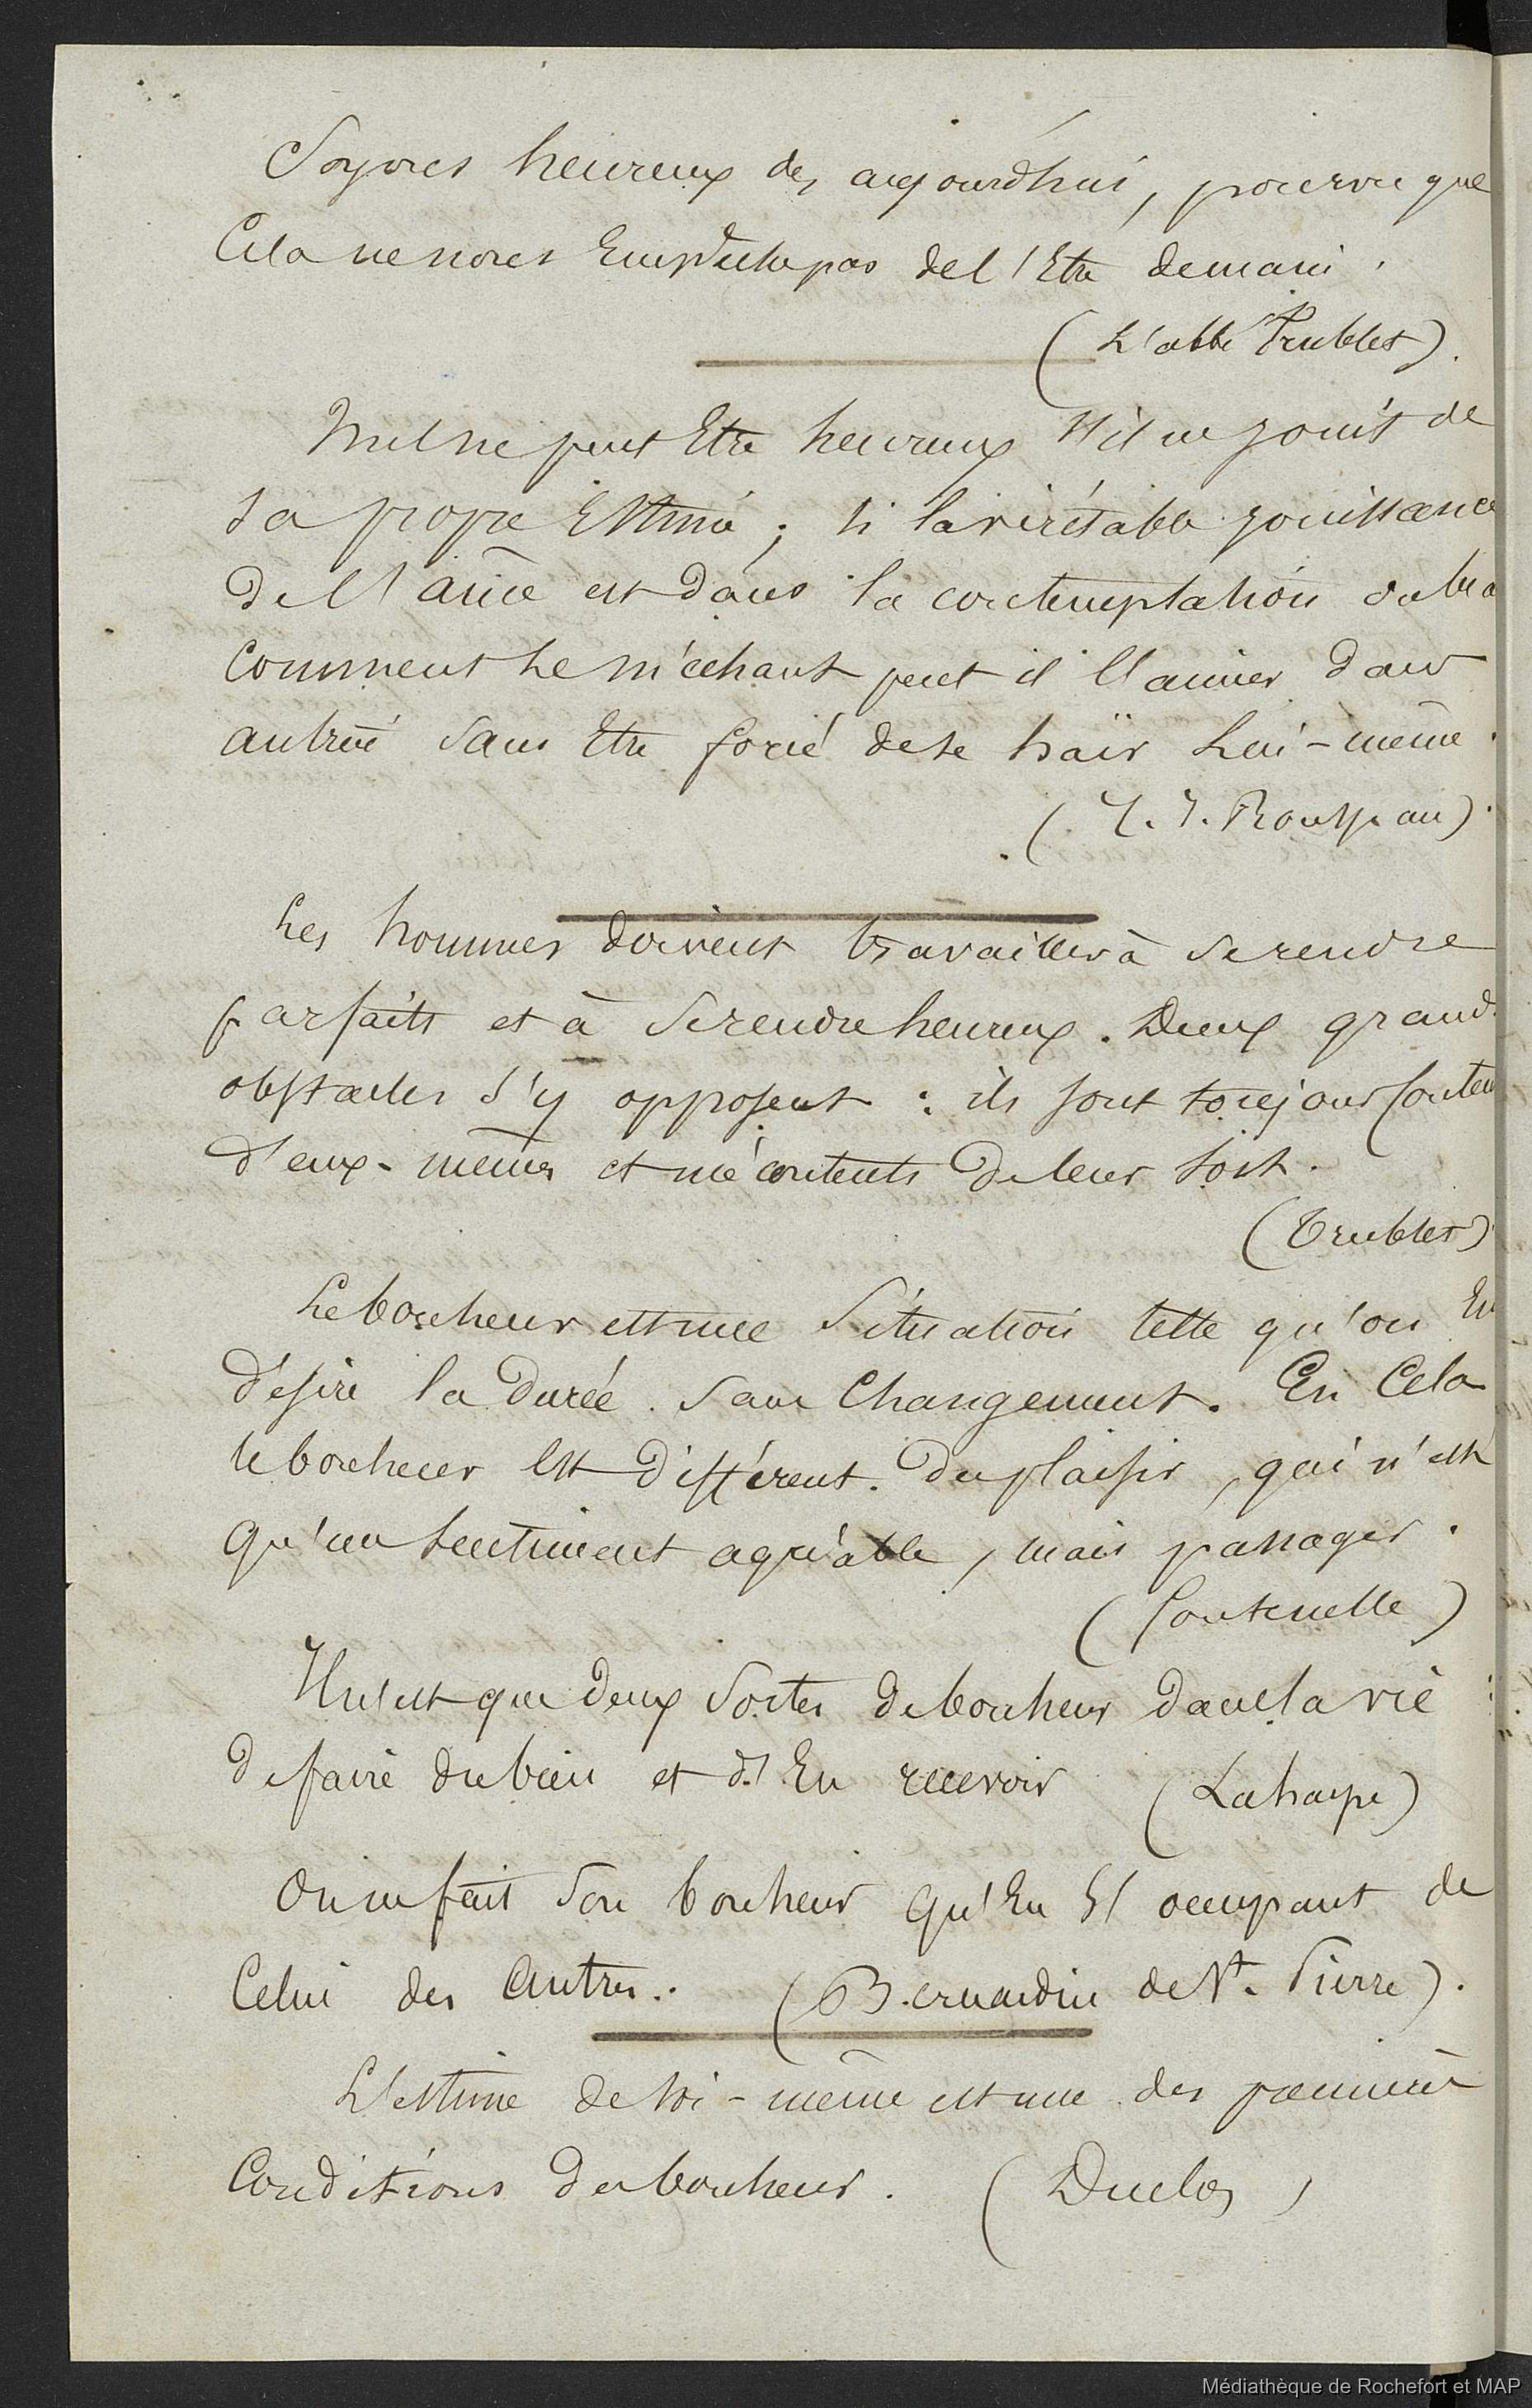 Soyons heureux dès aujourd'hui, pourvu que
Cela ne nous Empêche pas de l'Etre demain.
(L'abbé Trublet).
Nul ne peut Etre heureux s'il ne jouit de
sa propre Estime; si la véritable jouissance
de l'âme est dans la contemplation du beau
Comment le méchant peut il l'aimer dans
autrui sans Etre forcé de se haïr Lui-même.
(J. J. Rousseau).
Les hommes doivent travailler à se rendre
parfaits et à se rendre heureux. Deux grands
obstacles s'y opposent : ils sont toujours contents
d'eux-mêmes et mécontents de leur sort.
(Trublet)
Le bonheur est une Situation telle qu'on En
désire la Durée sans Changement. En Cela
le bonheur Est différent du plaisir, qui n'est
qu'un sentiment agréable, mais passager.
(fontenelle)
Il n'est que deux Sortes de bonheur dans la vie :
de faire du bien et d'En recevoir (Laharpe)
On ne fait son bonheur qu'En s'occupant de
Celui des autres. (Bernardin de St. Pierre).
L'estime de soi-même est une des premières
Conditions du bonheur. (Duclos)
Médiathèque de Rochefort et MAP